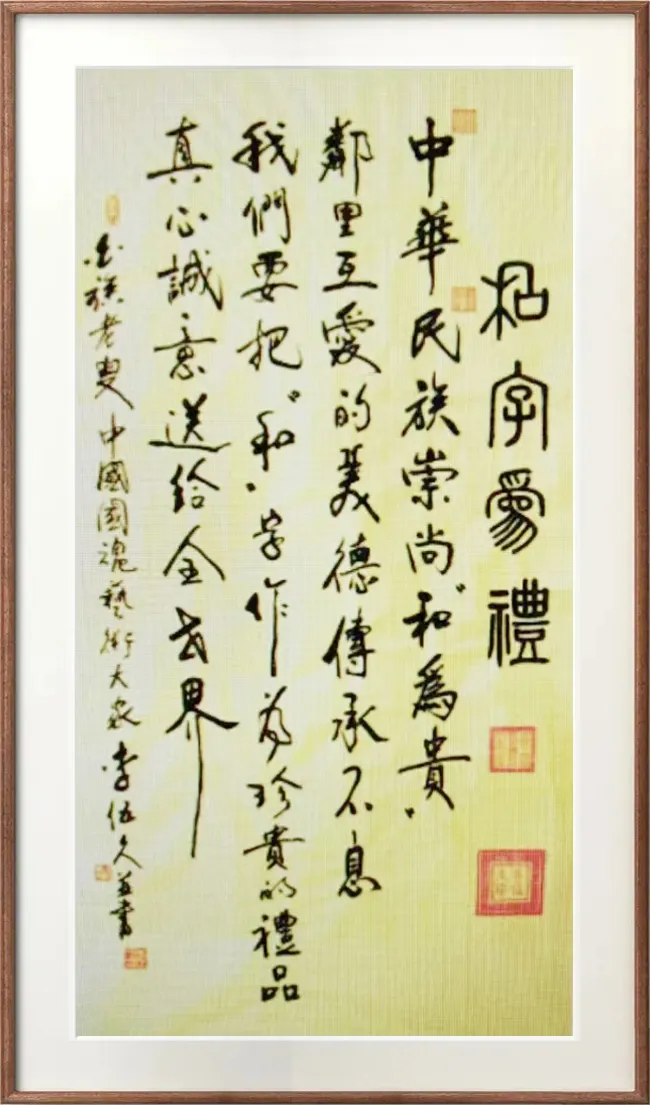 和字爲禮
中華民族崇尚“和爲貴”
鄰里互愛的美德傳承不息
我們要把“和”字作爲珍貴的禮品
真心誠意送給全世界
族老叟中國國魂藝術大家李伍久並書